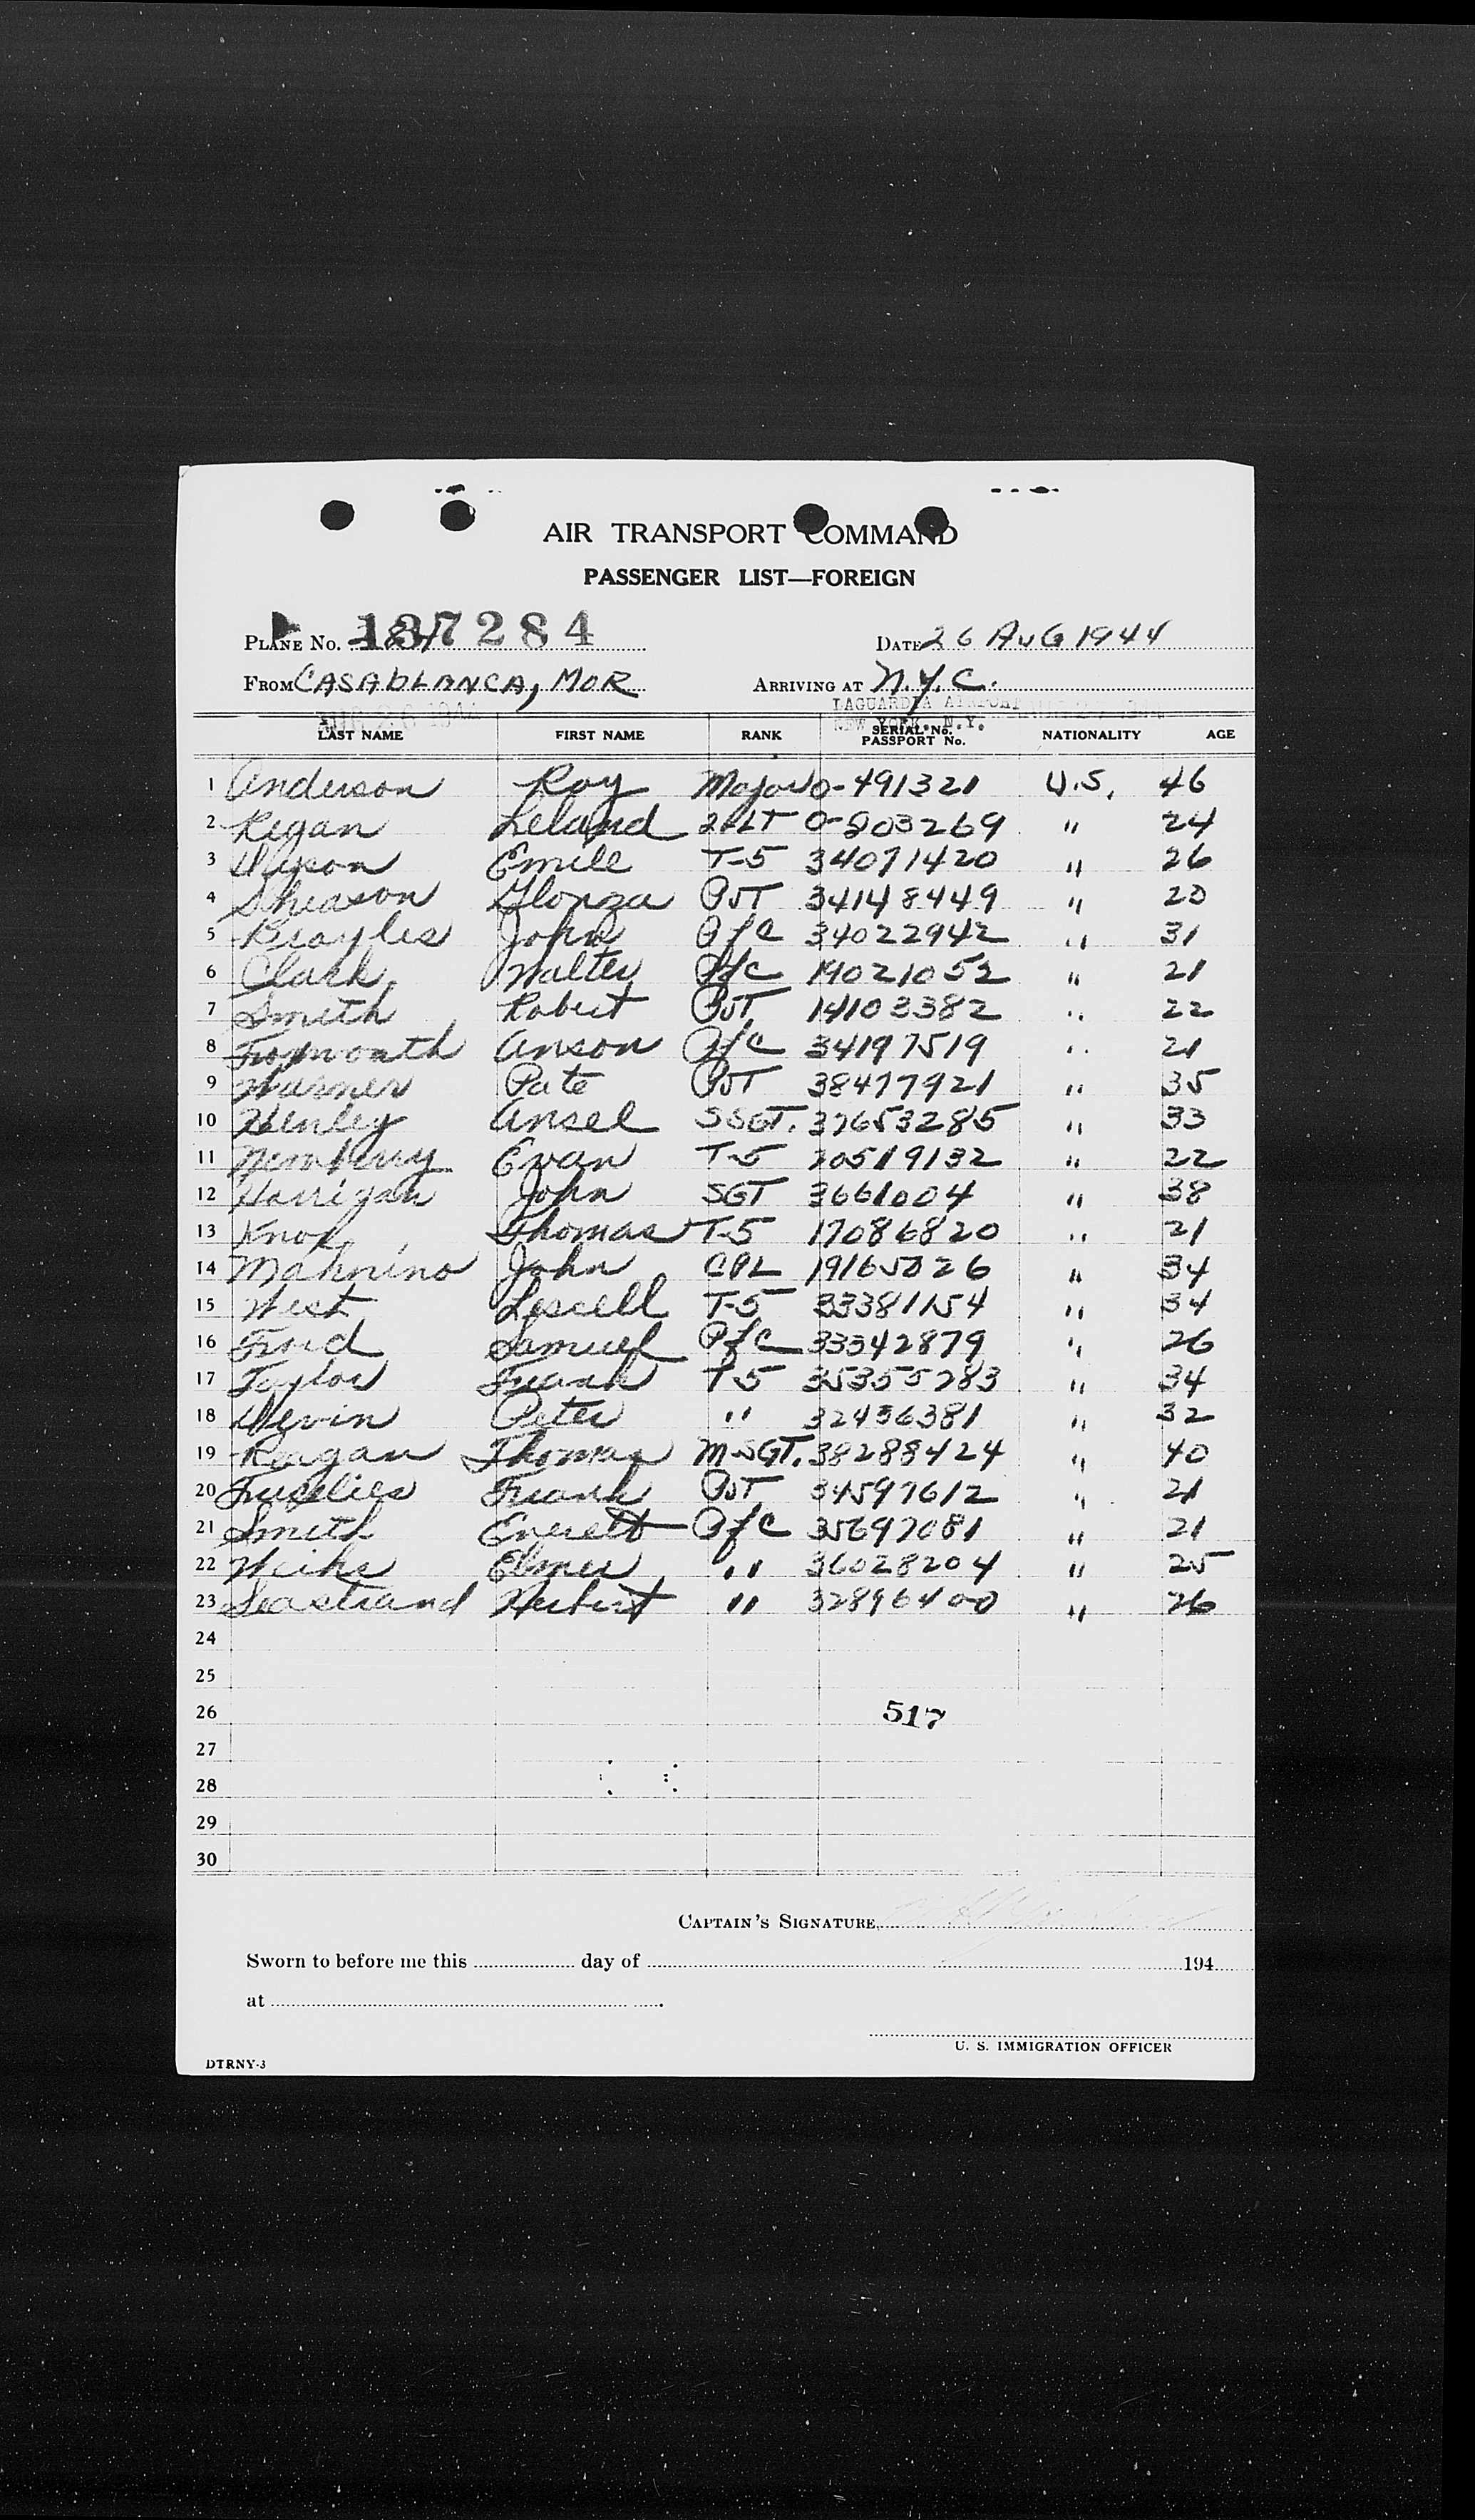 AIR TRANSPORT COMMAND
PASSENGER LIST—FOREIGN
PLANE No. 137284 DATE 26 AUG 1944
FROM CASABLANCA, MOR ARRIVING AT N.Y.C.
LAGUARDIA AIRPORT
NEW YORK, N.Y.
LAST NAME FIRST NAME RANK SERIAL No. PASSPORT No. NATIONALITY AGE
1 Anderson Roy Major O-491321 U.S. 46
2 Regan Leland 2nd LT O-803269 " 24
3 Emile T-5 34071420 " 26
4 PVT 34148449 " 20
5 Brayles John Pfc 34022942 " 31
6 Clark Walter Pfc 14021052 " 21
7 Smith Robert PVT 14103382 " 22
8 Anson Pfc 34197519 " 21
9 Warner Pate PVT 38477921 " 35
10 Henley Ansel S SGT. 37653285 " 33
11 Newberry Evan T-5 20519132 " 22
12 Harrigan John SGT 3661004 " 38
13 Knox Thomas T-5 17086820 " 21
14 Mannino John CPL 19165026 " 34
15 West T-5 33381154 " 34
16 Samuel Pfc 33342879 " 26
17 Taylor Frank T-5 35355283 " 34
18 Devin Peter " 32436381 " 32
19 Reagan Thomas M SGT. 38288424 " 40
20 Fuselier Frank PVT 34597612 " 21
21 Smith Everett Pfc 35697081 " 21
22 Elmer " 36028204 " 25
23 Seastrand Herbert " 32896400 " 26
24
25
26 517
27
28
29
30
CAPTAIN'S SIGNATURE
Sworn to before me this day of 194
at
U. S. IMMIGRATION OFFICER
DTRNY-3